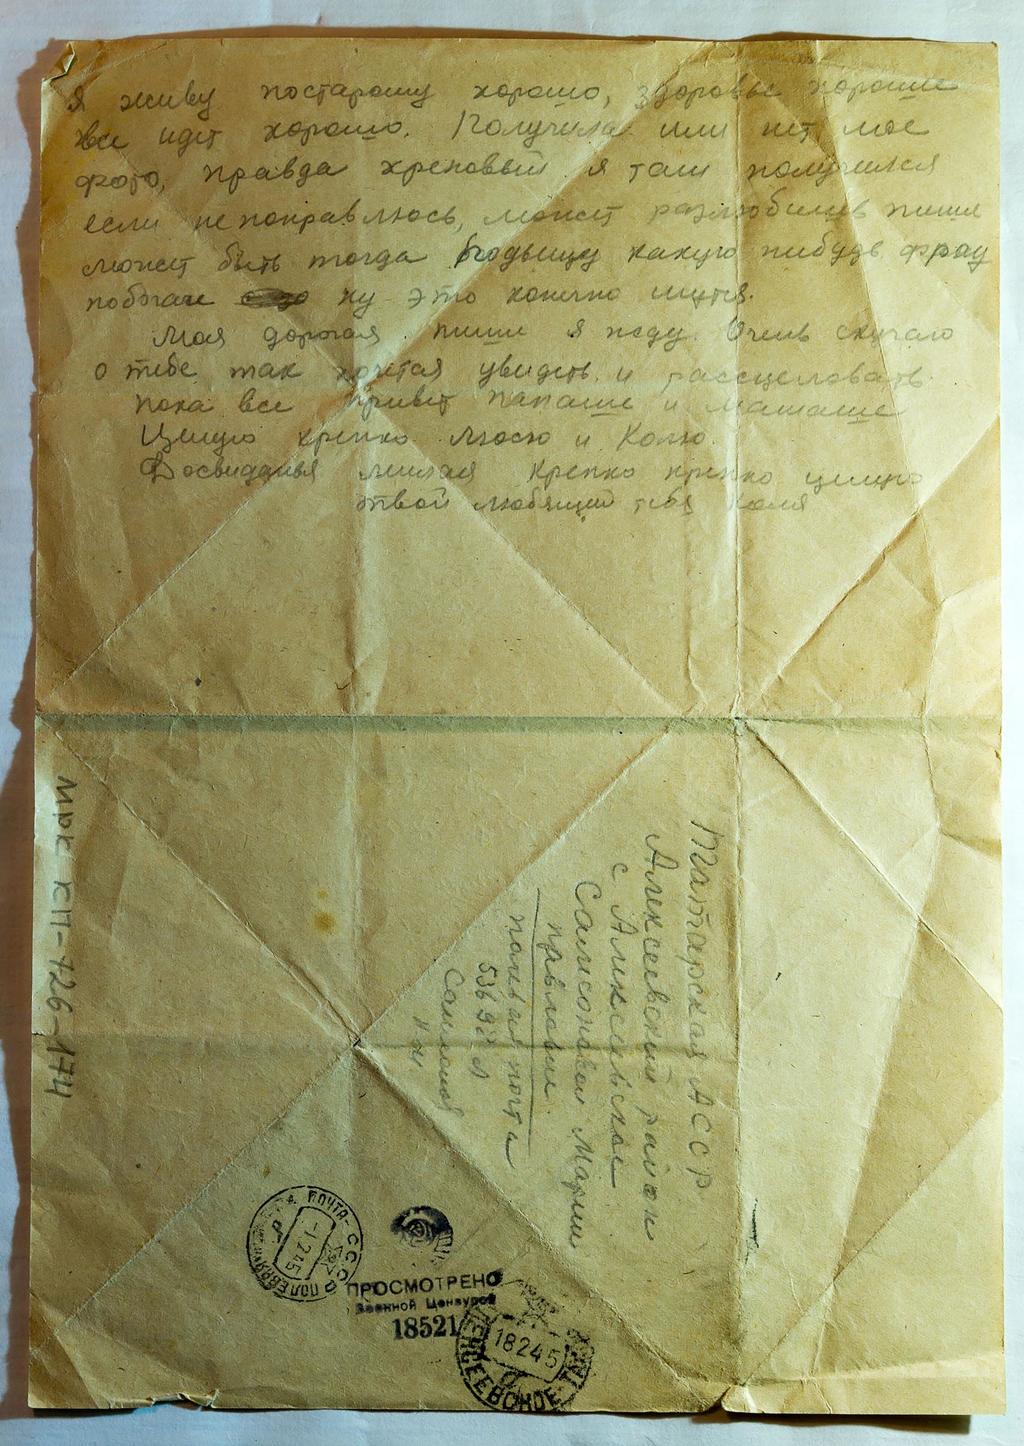 Я живу постарому хорошо, здоровье хорошие
все идет хорошо. Получила или нет мое
фото, правда хреновый я там получился
если не понравлюсь, может разлюбишь пиши
может быть тогда подыщу какую нибудь фрау
побогаче ну это конечно шутя.
Моя дорогая пиши я жду. Очень скучаю
о тебе так хочется увидеть и расцеловать
пока все привет папаше и мамаше
Целую крепко Люсю и Колю.
Досвиданья милая крепко крепко целую
твой любящий тебя Коля
Татарская АССР
Алексеевский район
с Алексеевское
Самсоновой Марии
полевая почта
53692 Л
Самсонов
Н Н
МРК КП-426-174
ПОЧТА-СССР ПОЛЕВАЯ
-1 2 45
ПРОСМОТРЕНО
Военной Цензурой
18521
18 2 45